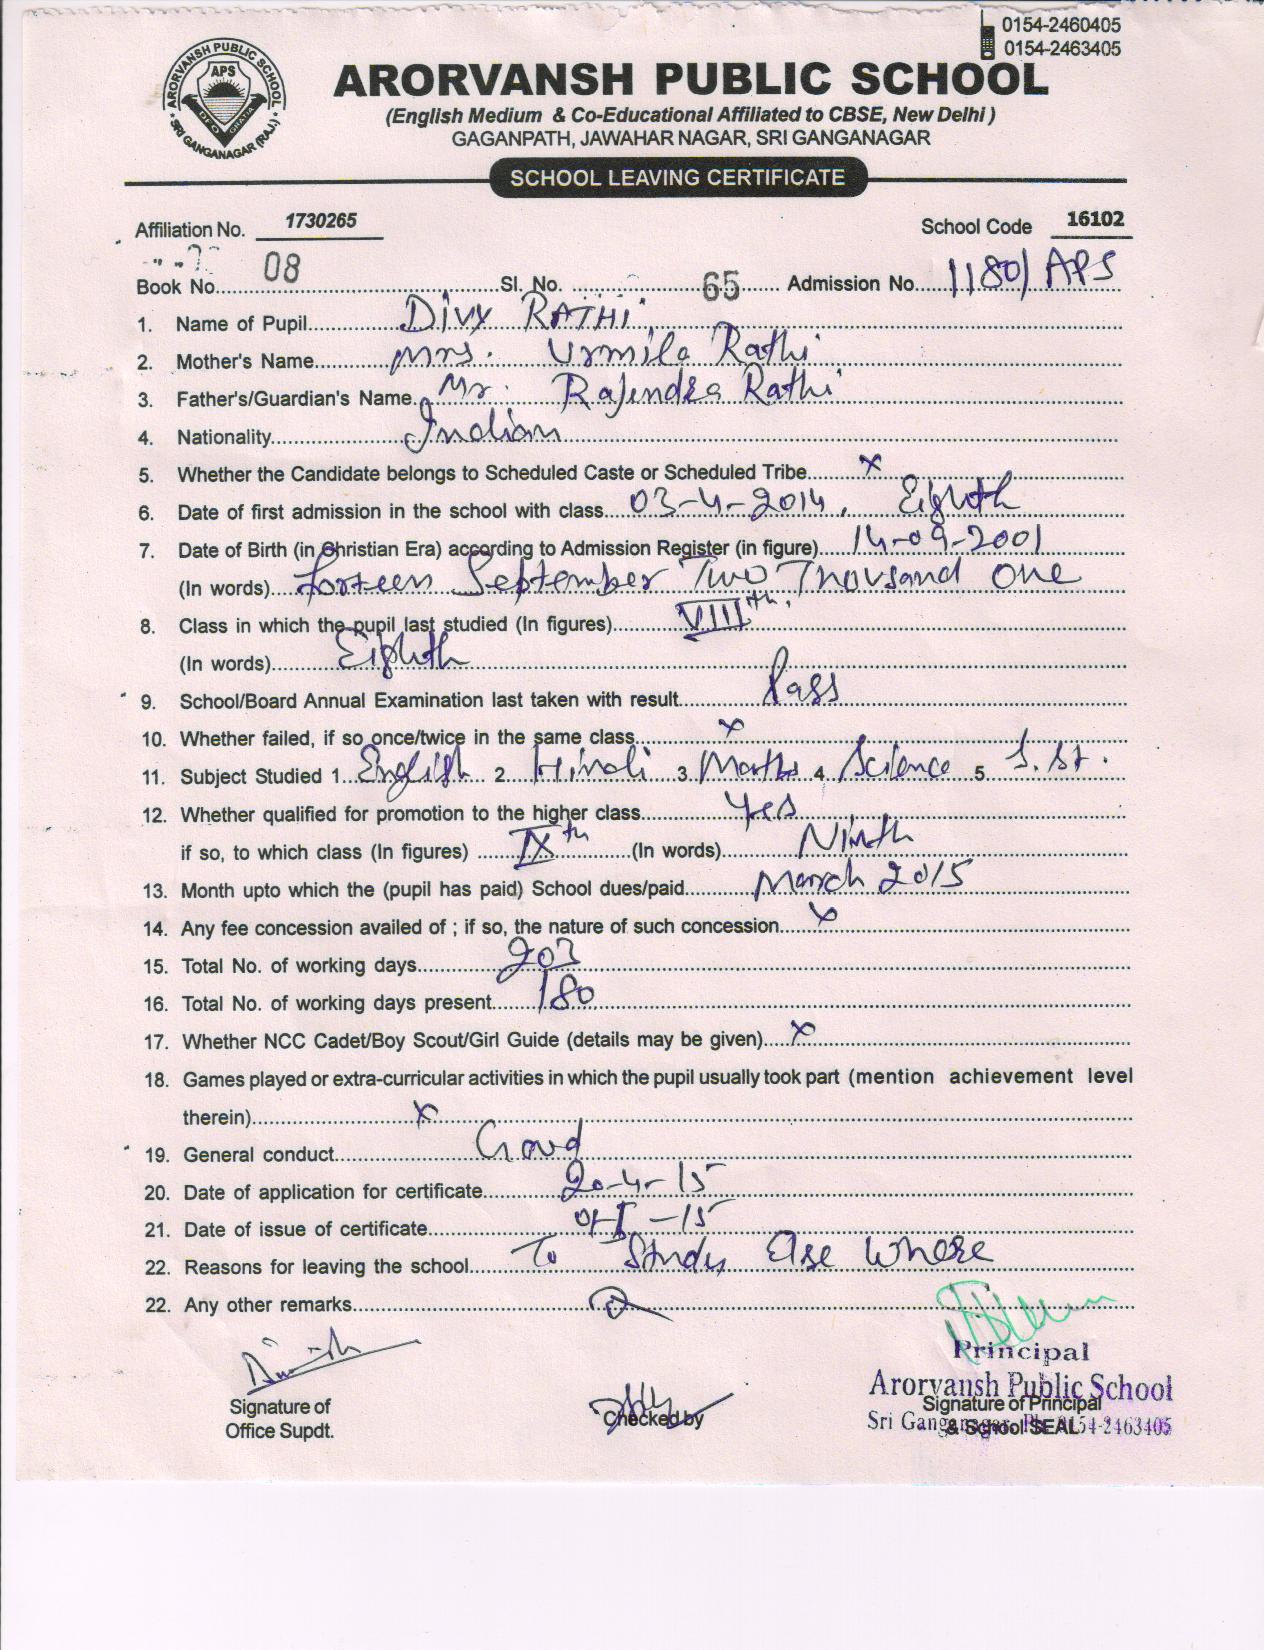 0154-2460405
0154-2463405
ARORVANSH PUBLIC SCHOOL
APS
SRI GANGANAGAR (RAJ.)
ARORVANSH PUBLIC SCHOOL
(English Medium & Co-Educational Affiliated to CBSE, New Delhi)
GAGANPATH, JAWAHAR NAGAR, SRI GANGANAGAR
SCHOOL LEAVING CERTIFICATE
Affiliation No. 1730265 School Code 16102
Book No. 08 Sl. No. 65 Admission No. 1180/APS
1. Name of Pupil DIVY RATHI
2. Mother's Name Mrs. Urmila Rathi
3. Father's/Guardian's Name Mr. Rajendra Rathi
4. Nationality Indian
5. Whether the Candidate belongs to Scheduled Caste or Scheduled Tribe x
6. Date of first admission in the school with class 03-4-2014, Eighth
7. Date of Birth (in Christian Era) according to Admission Register (in figure) 14-09-2001
(In words) Forteen September Two Thousand One
8. Class in which the pupil last studied (In figures) VIIIth.
(In words) Eighth
9. School/Board Annual Examination last taken with result Pass
10. Whether failed, if so once/twice in the same class x
11. Subject Studied 1. English 2. Hindi 3. Maths 4. Science 5. S.St.
12. Whether qualified for promotion to the higher class Yes
if so, to which class (In figures) IXth (In words) Ninth
13. Month upto which the (pupil has paid) School dues/paid March 2015
14. Any fee concession availed of ; if so, the nature of such concession x
15. Total No. of working days 203
16. Total No. of working days present 180
17. Whether NCC Cadet/Boy Scout/Girl Guide (details may be given) x
18. Games played or extra-curricular activities in which the pupil usually took part (mention achievement level
therein) x
19. General conduct Good
20. Date of application for certificate 20-4-15
21. Date of issue of certificate -15
22. Reasons for leaving the school To Study Else Where
22. Any other remarks
Principal
Arorvansh Public School
Sri Ganganagar Ph. 0154-2463405
Signature of
Office Supdt.
Checked by
Signature of Principal
& School SEAL